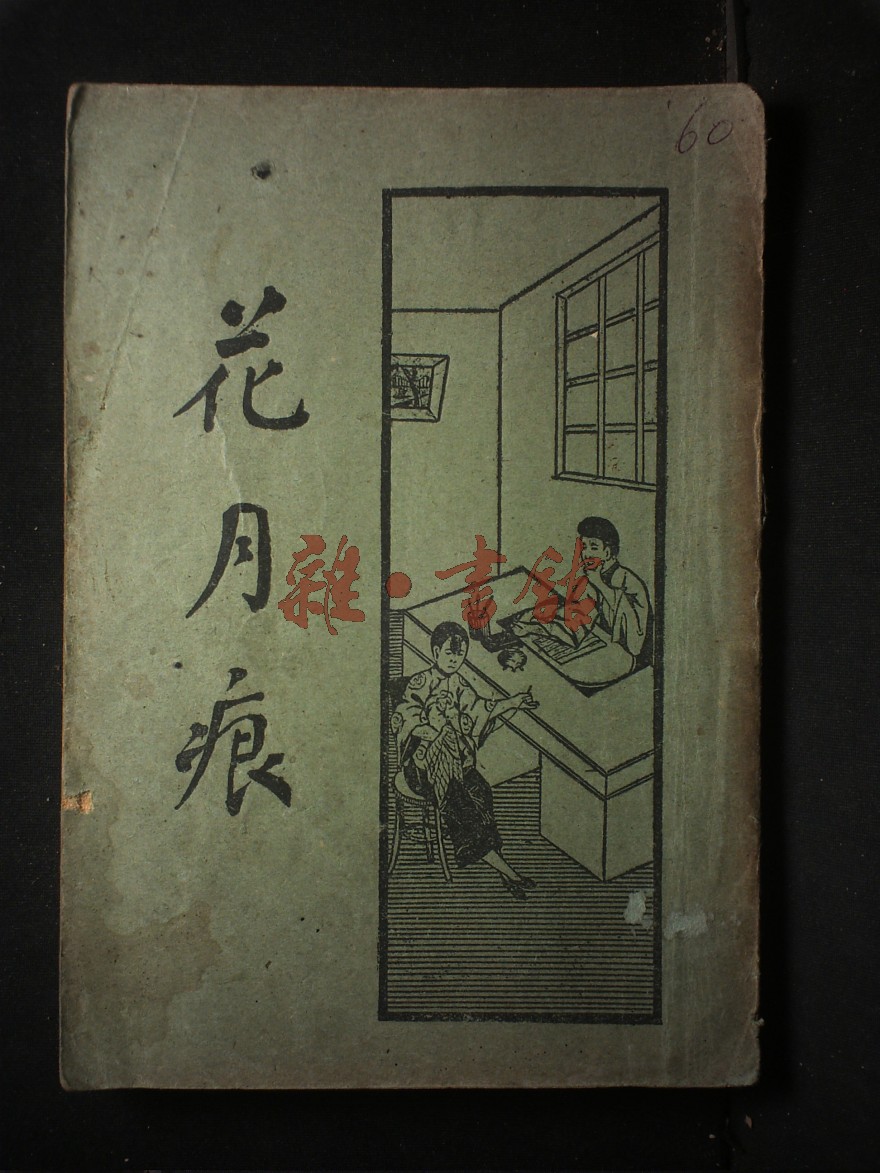 60
花月痕
雜·書館